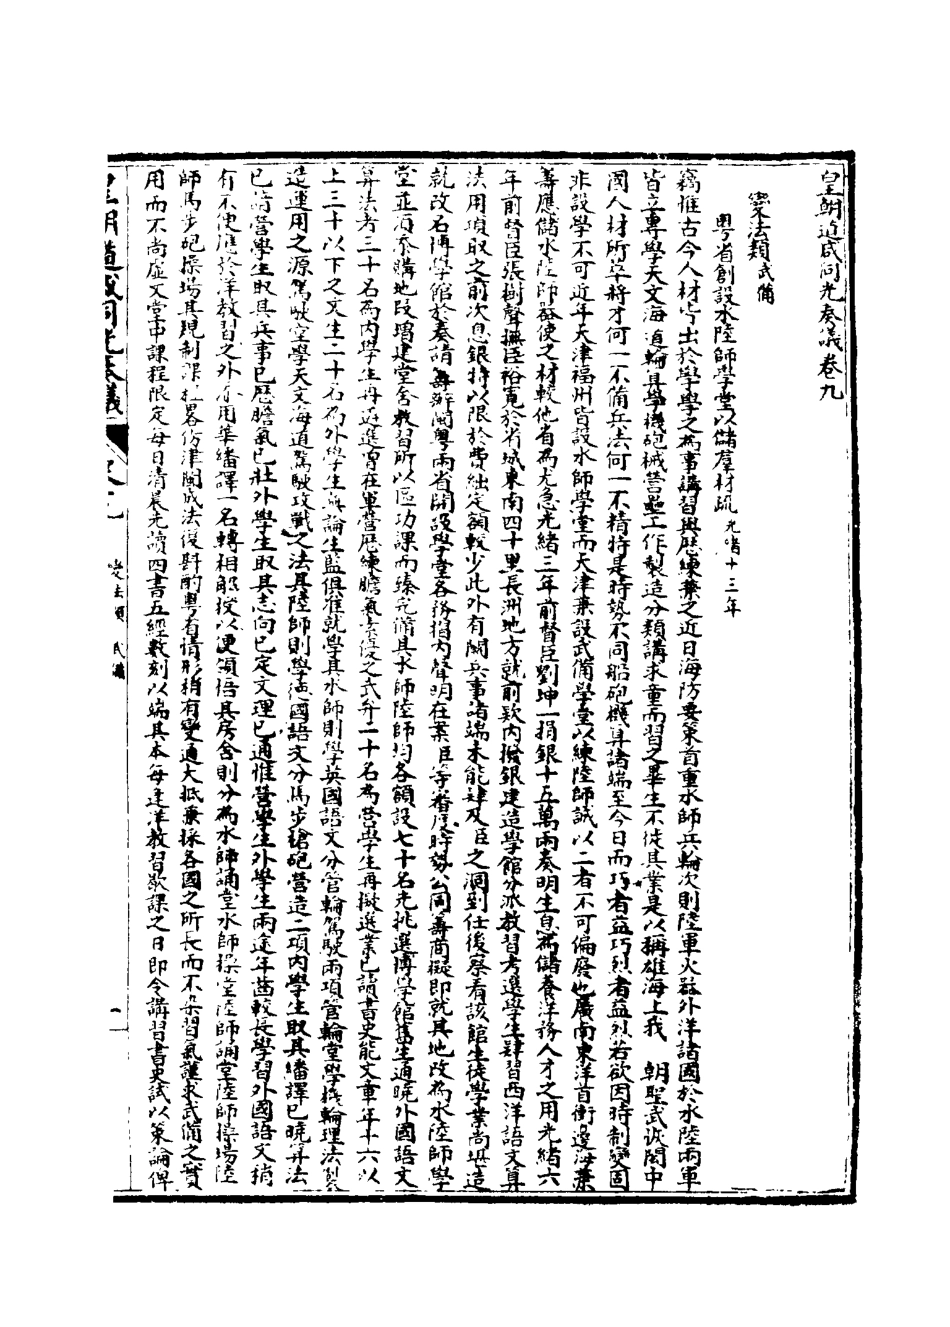 皇朝道咸同光奏議卷九
變法類武備
粵省創設水陸師學堂以儲羣材疏光緒十三年
竊惟古今人材皆出於學學之為事講習與歷練兼之近日海防要策首重水師兵輪次則陸軍火器外洋諸國於水陸兩軍
皆立專學天文海道輪具學機砲械營壘工作製造分類講求童而習之畢生不徙其業是以稱雄海上我 朝聖武淑聞中
國人材所萃將才何一不備兵法何一不精特是時勢不同船砲機算諸端至今日而巧者益巧烈者益烈若欲因時制變固
非設學不可近年天津福州皆設水師學堂而天津兼設武備學堂以練陸師誠以二者不可偏廢也廣南東洋首衝邊海兼
籌應儲水陸師器使之材較他省為尤急光緒三年前督臣劉坤一捐銀十五萬兩奏明生息為儲養洋務人才之用光緒六
年前督臣張樹聲撫臣裕寬於省城東南四十里長洲地方就前款內撥銀建造學館分派教習考選學生肄習西洋語文算
法用項取之前次息銀特以限於費絀定額較少此外有關兵事諸端未能肄及臣之洞到任後察看該館生徒學業尚堪造
就改名博學館於奏請籌辦閩粵兩省開設學堂各務摺內聲明在案臣等審度時勢公同籌商擬即就其地改為水陸師學
堂並須添購地段增建堂舍教習所以區功課而臻完備其水師陸師均各額設七十名先挑選博學館舊生通曉外國語文
算法者三十名為內學生再遴選曾在軍營歷練膽氣素優之武弁二十名為營學生再擬選業已讀書史能文章年十六以
上三十以下之文生二十名為外學生無論生監俱准就學其水師則學英國語文分管輪駕駛兩項管輪堂學機輪理法製
造運用之源駕駛堂學天文海道駕駛攻戰之法其陸師則學德國語文分馬步槍砲營造二項內學生取其繙譯已曉算法
已諳營學生取其兵事已歷膽氣已壯外學生取其志向已定文理已通惟營學生外學生兩途年齒較長學習外國語文稍
有不便應於洋教習之外添用華繙譯一名轉相解授以便領悟其房舍則分為水師誦堂水師操堂陸師誦堂陸師操場陸
師馬步砲操場其規制課程畧仿津閩成法復斟酌粵省情形稍有變通大抵兼採各國之所長而不染習氣講求武備之實
用而不尚虛文堂中課程限定每日清晨先讀四書五經數刻以端其本每逢洋教習歇課之日即令講習書史試以策論俾
皇朝道咸同光奏議 卷九 變法類 武備 一